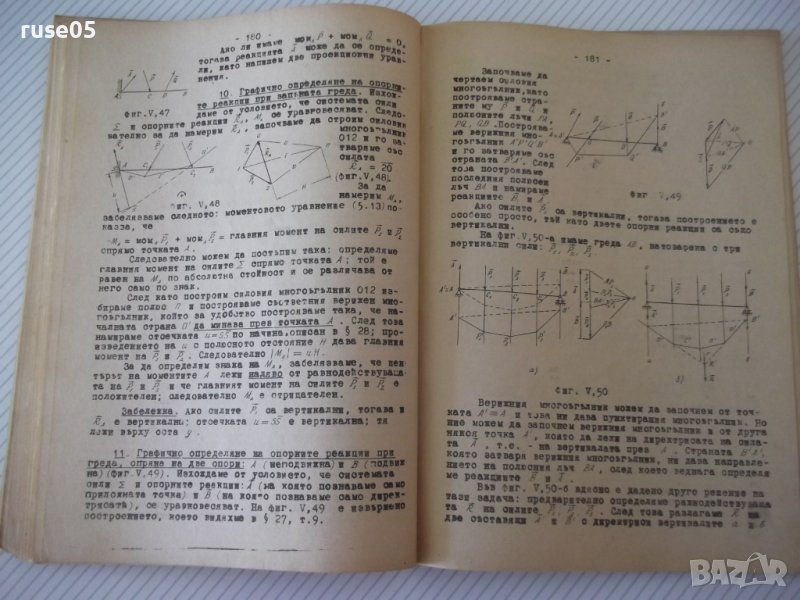 ruse05
- 180 -
Ако ли имаме мом, P̄ + мом, Q̄ = 0,
тогава реакцията Ā може да се опреде-
ли, като напишем две проекционни урав-
нения.
10. Графично определяне на опорни-
те реакции при запъната греда. Изхож-
даме от условието, че системата сили
Σ и опорните реакции се уравновесяват. Следо-
вателно за да намерим започваме да строим силовия
многоъгълник
012 и го за-
тваряме със
силата
= 20
(фиг.V,48).
За да
намерим M
фиг.V,47
фиг. V,48
забелязваме следното: моментовото уравнение (5.13) по-
казва, че
= главния момент на силите P̄₁ и P̄₂
спрямо точката A.
Следователно можем да постъпим така: определяме
главния момент на силите Σ спрямо точката A; той е
равен на M по абсолютна стойност и се различава от
него само по знак.
След като построим силовия многоъгълник 012 из-
бираме полюс П и построяваме съответния верижен мно-
гоъгълник, който за удобство построяваме така, че на-
чалната страна 0' да минава през точката A. След това
намираме отсечката по начина, описан в § 28; про-
изведението на u с полюсното отстояние H дава главния
момент на P̄₁ и P̄₂. Следователно = uH.
За да определим знака на M, забелязваме, че цен-
търът на моментите A лежи наляво от равнодействуваща-
та на P̄₁ и P̄₂ и че главният момент на силите P̄₁ и P̄₂ е
положителен; следователно M е отрицателен.
Забележка. Ако силите са вертикални, тогава и
е вертикална; отсечката е вертикална; тя
лежи върху оста y.
11. Графично определяне на опорните реакции при
греда, опряна на две опори: A (неподвижна) и B (подвиж-
на) (фиг.V,49). Изхождаме от условието, че системата
сили Σ и опорните реакции: Ā (на която познаваме само
приложната точка) и B̄ (на която познаваме само дирек-
трисата), се уравновесяват. На фиг. V,49 е извършено
построението, което видяхме в § 27, т.9.
- 181 -
Започваме да
чертаем силовия
многоъгълник, като
построяваме стра-
ните му P̄ и Q̄ и
полюсните лъчи ПА,
PQ, QB. Построява-
ме верижния много-
ъгълник A'P'Q'B'
и го затваряме със
страната B'A'. След
това построяваме
последния полюсен
лъч BA и намираме
реакциите B̄ и Ā.
фиг V,49
Ако силите са вертикални, тогава построението е
особено просто, тъй като двете опорни реакции са също
вертикални.
На фиг.V,50-а имаме греда AB, натоварена с три
вертикални сили: P̄₁, P̄₂, P̄₃.
а)
б)
фиг. V,50
Верижния многоъгълник можем да започнем от точ-
ката A'≡A и това ни дава пунктирания многоъгълник. Но
ние можем да започнем верижния многоъгълник и от друга
някоя точка A', която да лежи на директрисата на сила-
та Ā, т.е. - на вертикалата през A. Страната B'A',
която затваря верижния многоъгълник, ни дава направле-
нието на полюсния лъч BA, след което веднага определя-
ме реакциите B̄ и Ā.
Във фиг. V,50-б вдясно е дадено друго решение на
тази задача: предварително определяме равнодействуваща-
та R̄ на силите P̄₁, P̄₂, P̄₃. След това разлагаме R̄ на
две съставящи Ā' и B̄' с директриси вертикалите a и b
BAZAR
bg